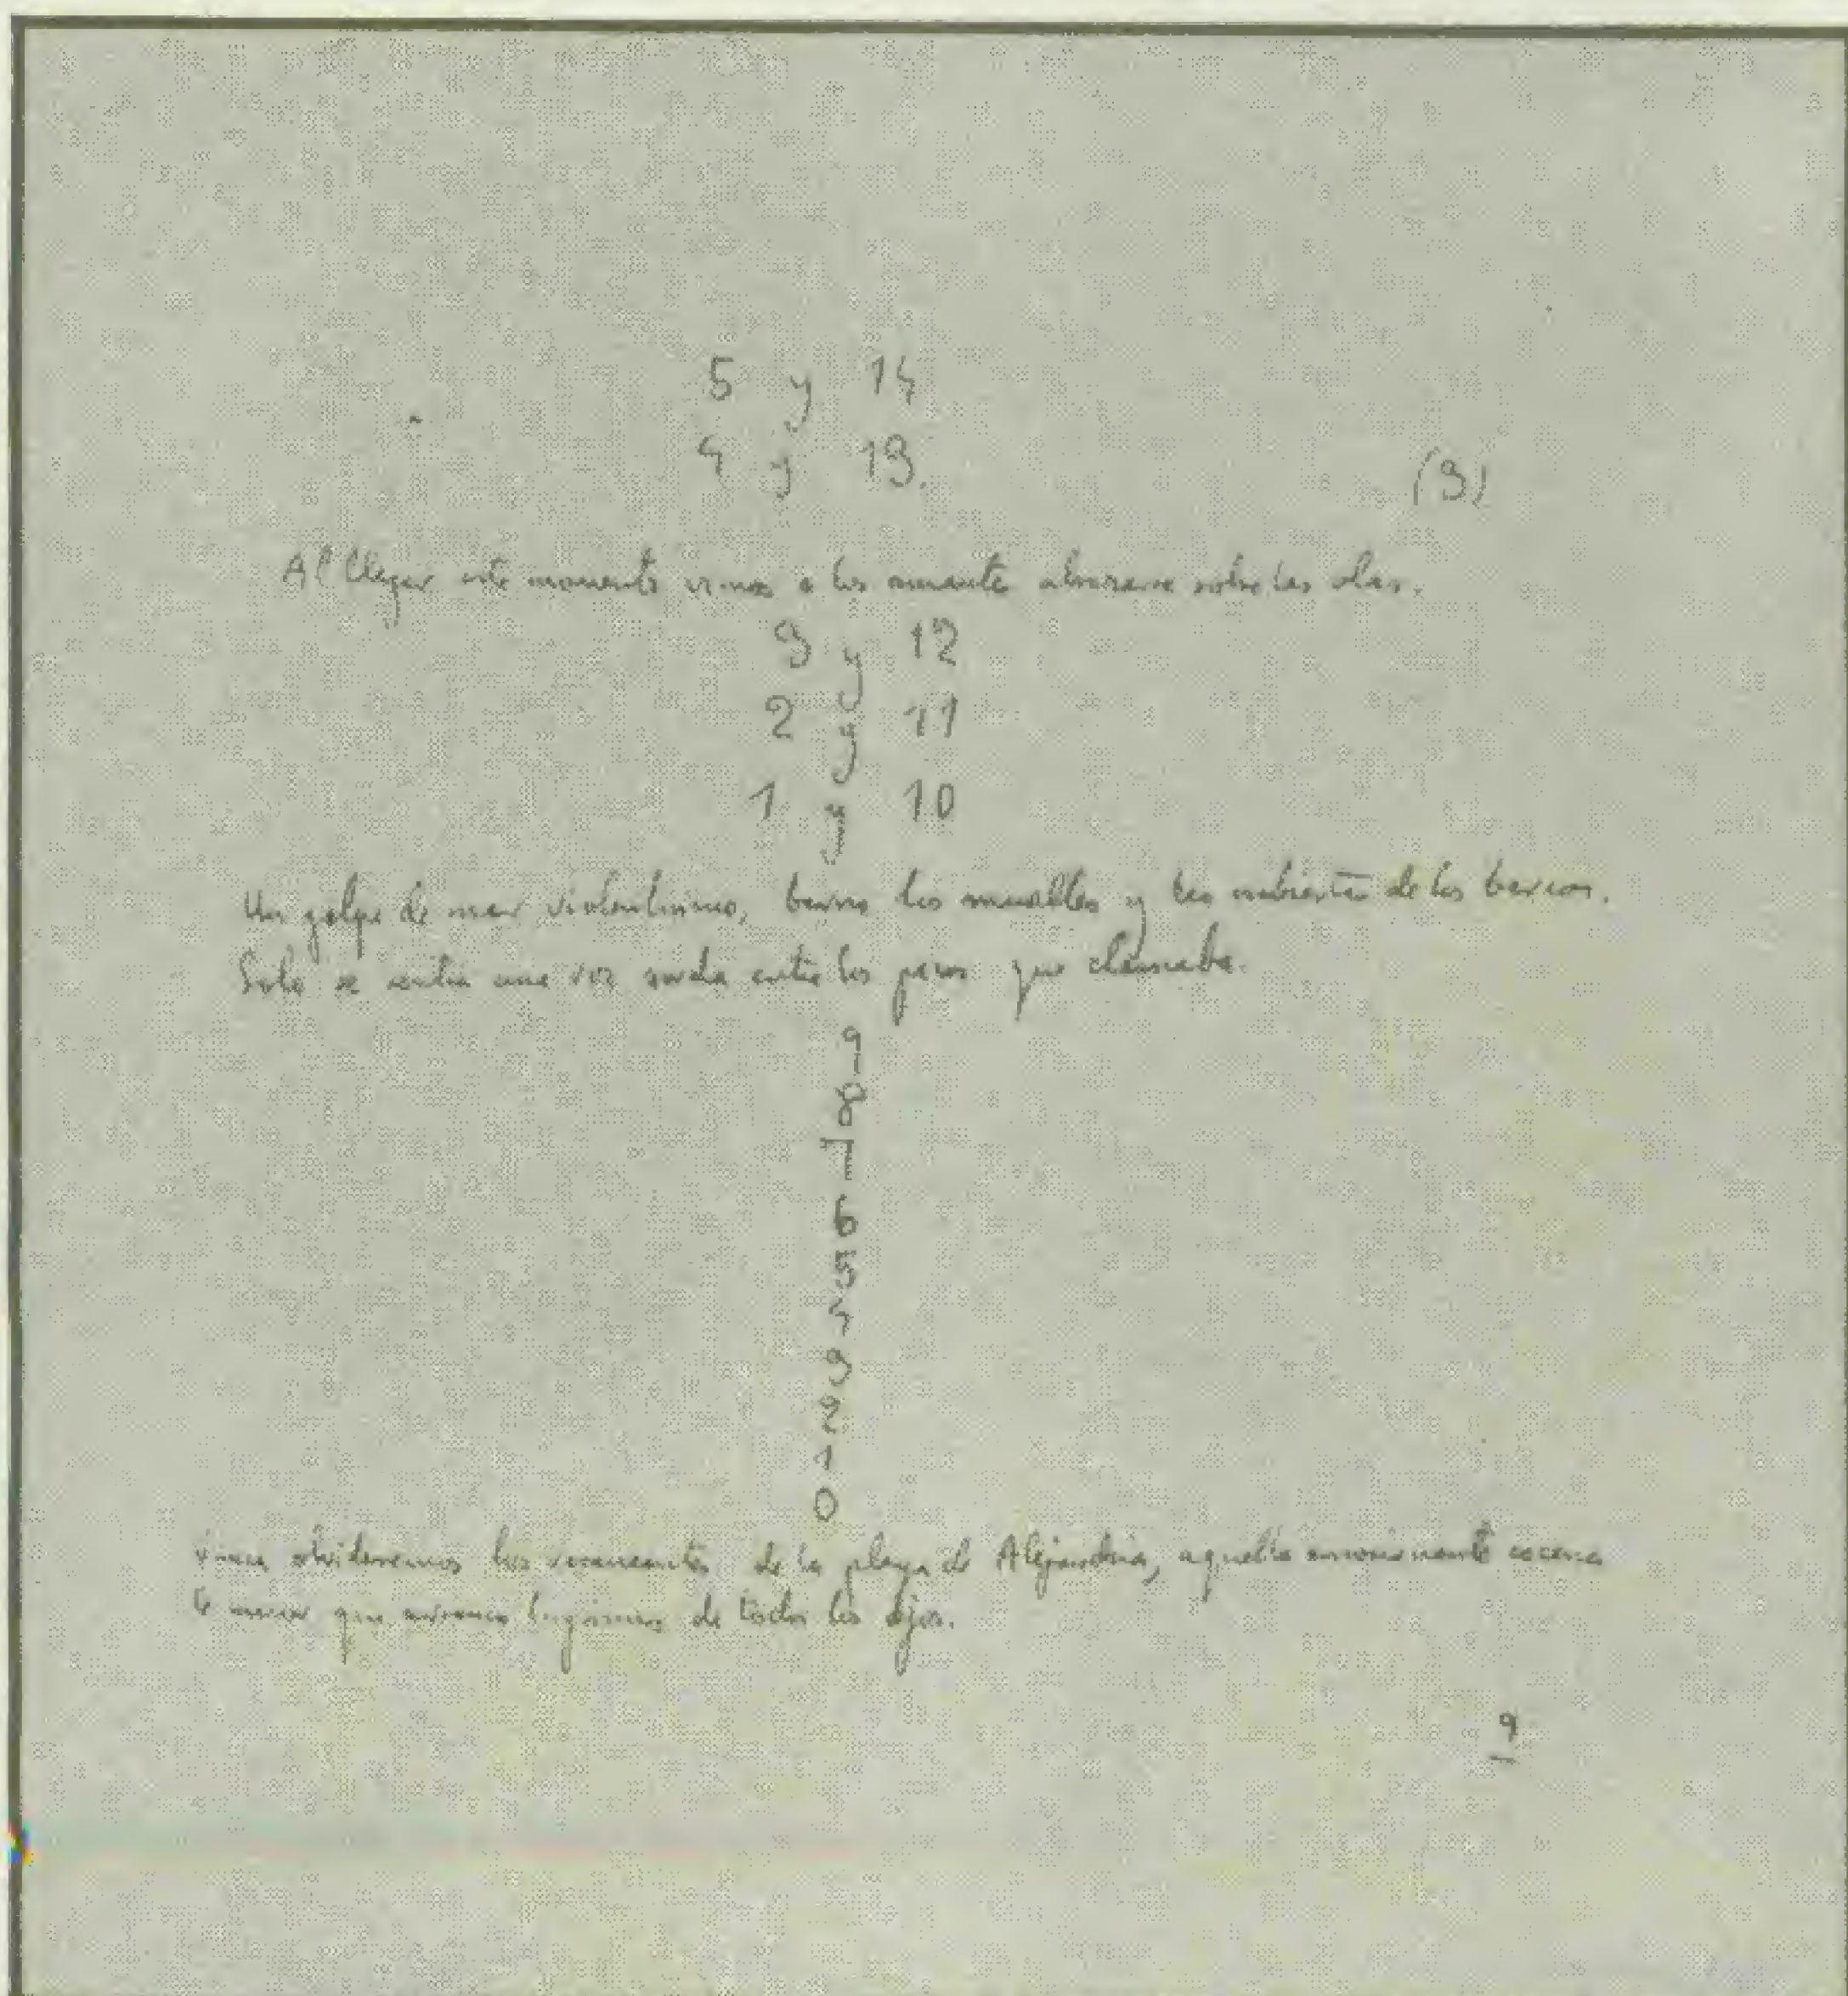 5 y 14
4 y 13.
(3)
Al llegar este momento vimos a los amantes abrazarse sobre las olas.
3 y 12
2 y 11
1 y 10
Un golpe de mar violentísimo, barrio los muelles y las cubiertas de los barcos.
Solo se sentia una voz sorda entre los peces que clamaba.
9
8
7
6
5
4
3
2
1
0
olvidaremos los veraneantes de la playa de Alejandria, aquella emocionante escena
de amor que arranco lagrimas de todos los ojos.
9